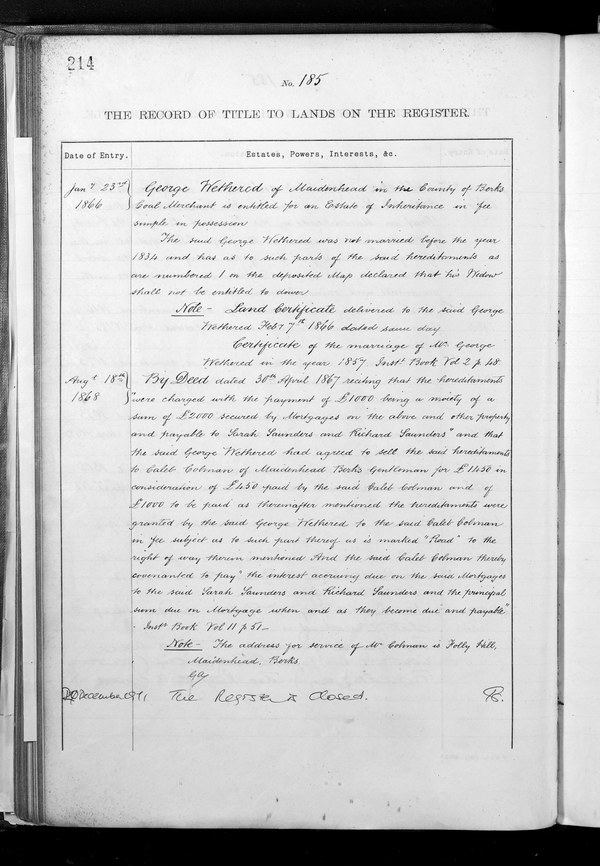 214
No. 185
THE RECORD OF TITLE TO LANDS ON THE REGISTER.
Date of Entry. Estates, Powers, Interests, &c.
Jany 23rd George Wethered of Maidenhead in the County of Berks
1866 Coal Merchant is entitled for an Estate of Inheritance in fee
simple in possession
The said George Wethered was not married before the year
1834 and has as to such parts of the said hereditaments as
are numbered 1 on the deposited Map declared that his Widow
shall not be entitled to dower
Note - Land Certificate delivered to the said George
Wethered Feby 7th 1866 dated same day
Certificate of the marriage of Mr George
Wethered in the year 1857 Inst. Book Vol 2 p 48
Augt 18th By Deed dated 30th April 1867 reciting that the hereditaments
1868 "were charged with the payment of £1000 being a moiety of a
sum of £2000 secured by Mortgages on the above and other property
and payable to Sarah Saunders and Richard Saunders" and that
the said George Wethered had agreed to sell the said hereditaments
to Caleb Colman of Maidenhead Berks Gentleman for £1450 in
consideration of £450 paid by the said Caleb Colman and of
£1000 to be paid as thereinafter mentioned the hereditaments were
granted by the said George Wethered to the said Caleb Colman
in fee subject as to such part thereof as is marked "Road" to the
right of way therein mentioned And the said Caleb Colman thereby
covenanted to pay "the interest accruing due on the said Mortgages
to the said Sarah Saunders and Richard Saunders and the principal
sum due on Mortgage when and as they become due and payable"
- Inst. Book Vol 11 p 51 -
Note - The address for service of Mr Colman is Folly Hill,
Maidenhead, Berks
December The Register is Closed.